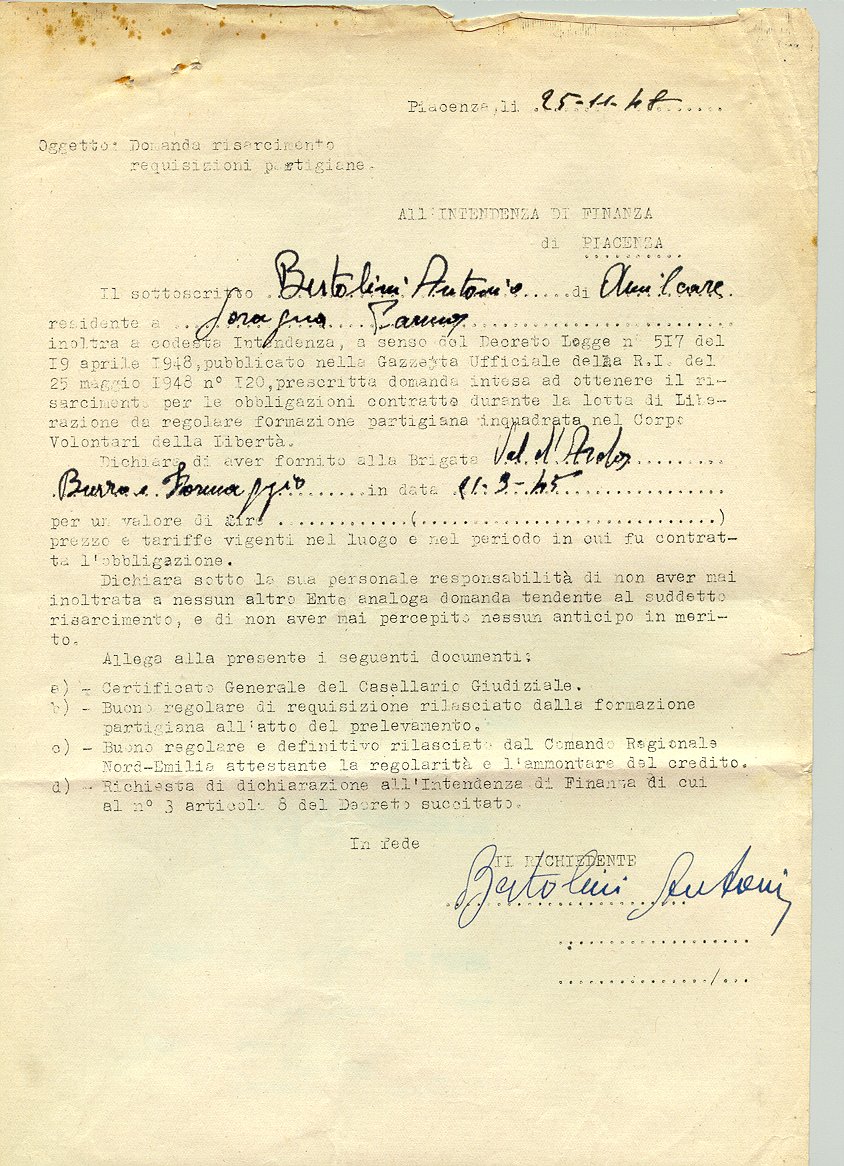 Piacenza,li 25-11-48
Oggetto: Domanda risarcimento
requisizioni partigiane.
All'INTENDENZA DI FINANZA
di PIACENZA
Il sottoscritto Bertolini Antonio di Amilcare
residente a Soragna Parma
inoltra a codesta Intendenza, a senso del Decreto Legge n° 517 del
19 aprile 1948,pubblicato nella Gazzetta Ufficiale della R.I. del
25 maggio 1948 n° 120,prescritta domanda intesa ad ottenere il ri-
sarcimento per le obbligazioni contratte durante la lotta di Libe-
razione da regolare formazione partigiana inquadrata nel Corpo
Volontari della Libertà.
Dichiara di aver fornito alla Brigata Val d'Arda
Burro e Formaggio in data 11-3-45
per un valore di Lire ............(............................)
prezzo e tariffe vigenti nel luogo e nel periodo in cui fu contrat-
ta l'obbligazione.
Dichiara sotto la sua personale responsabilità di non aver mai
inoltrata a nessun altro Ente analoga domanda tendente al suddetto
risarcimento, e di non aver mai percepito nessun anticipo in meri-
to.
Allega alla presente i seguenti documenti:
a) - Certificato Generale del Casellario Giudiziale.
b) - Buono regolare di requisizione rilasciato dalla formazione
partigiana all'atto del prelevamento.
c) - Buono regolare e definitivo rilasciato dal Comando Regionale
Nord-Emilia attestante la regolarità e l'ammontare del credito.
d) - Richiesta di dichiarazione all'Intendenza di Finanza di cui
al n° 3 articolo 8 del Decreto succitato.
In fede
IL RICHIEDENTE
Bertolini Antoni